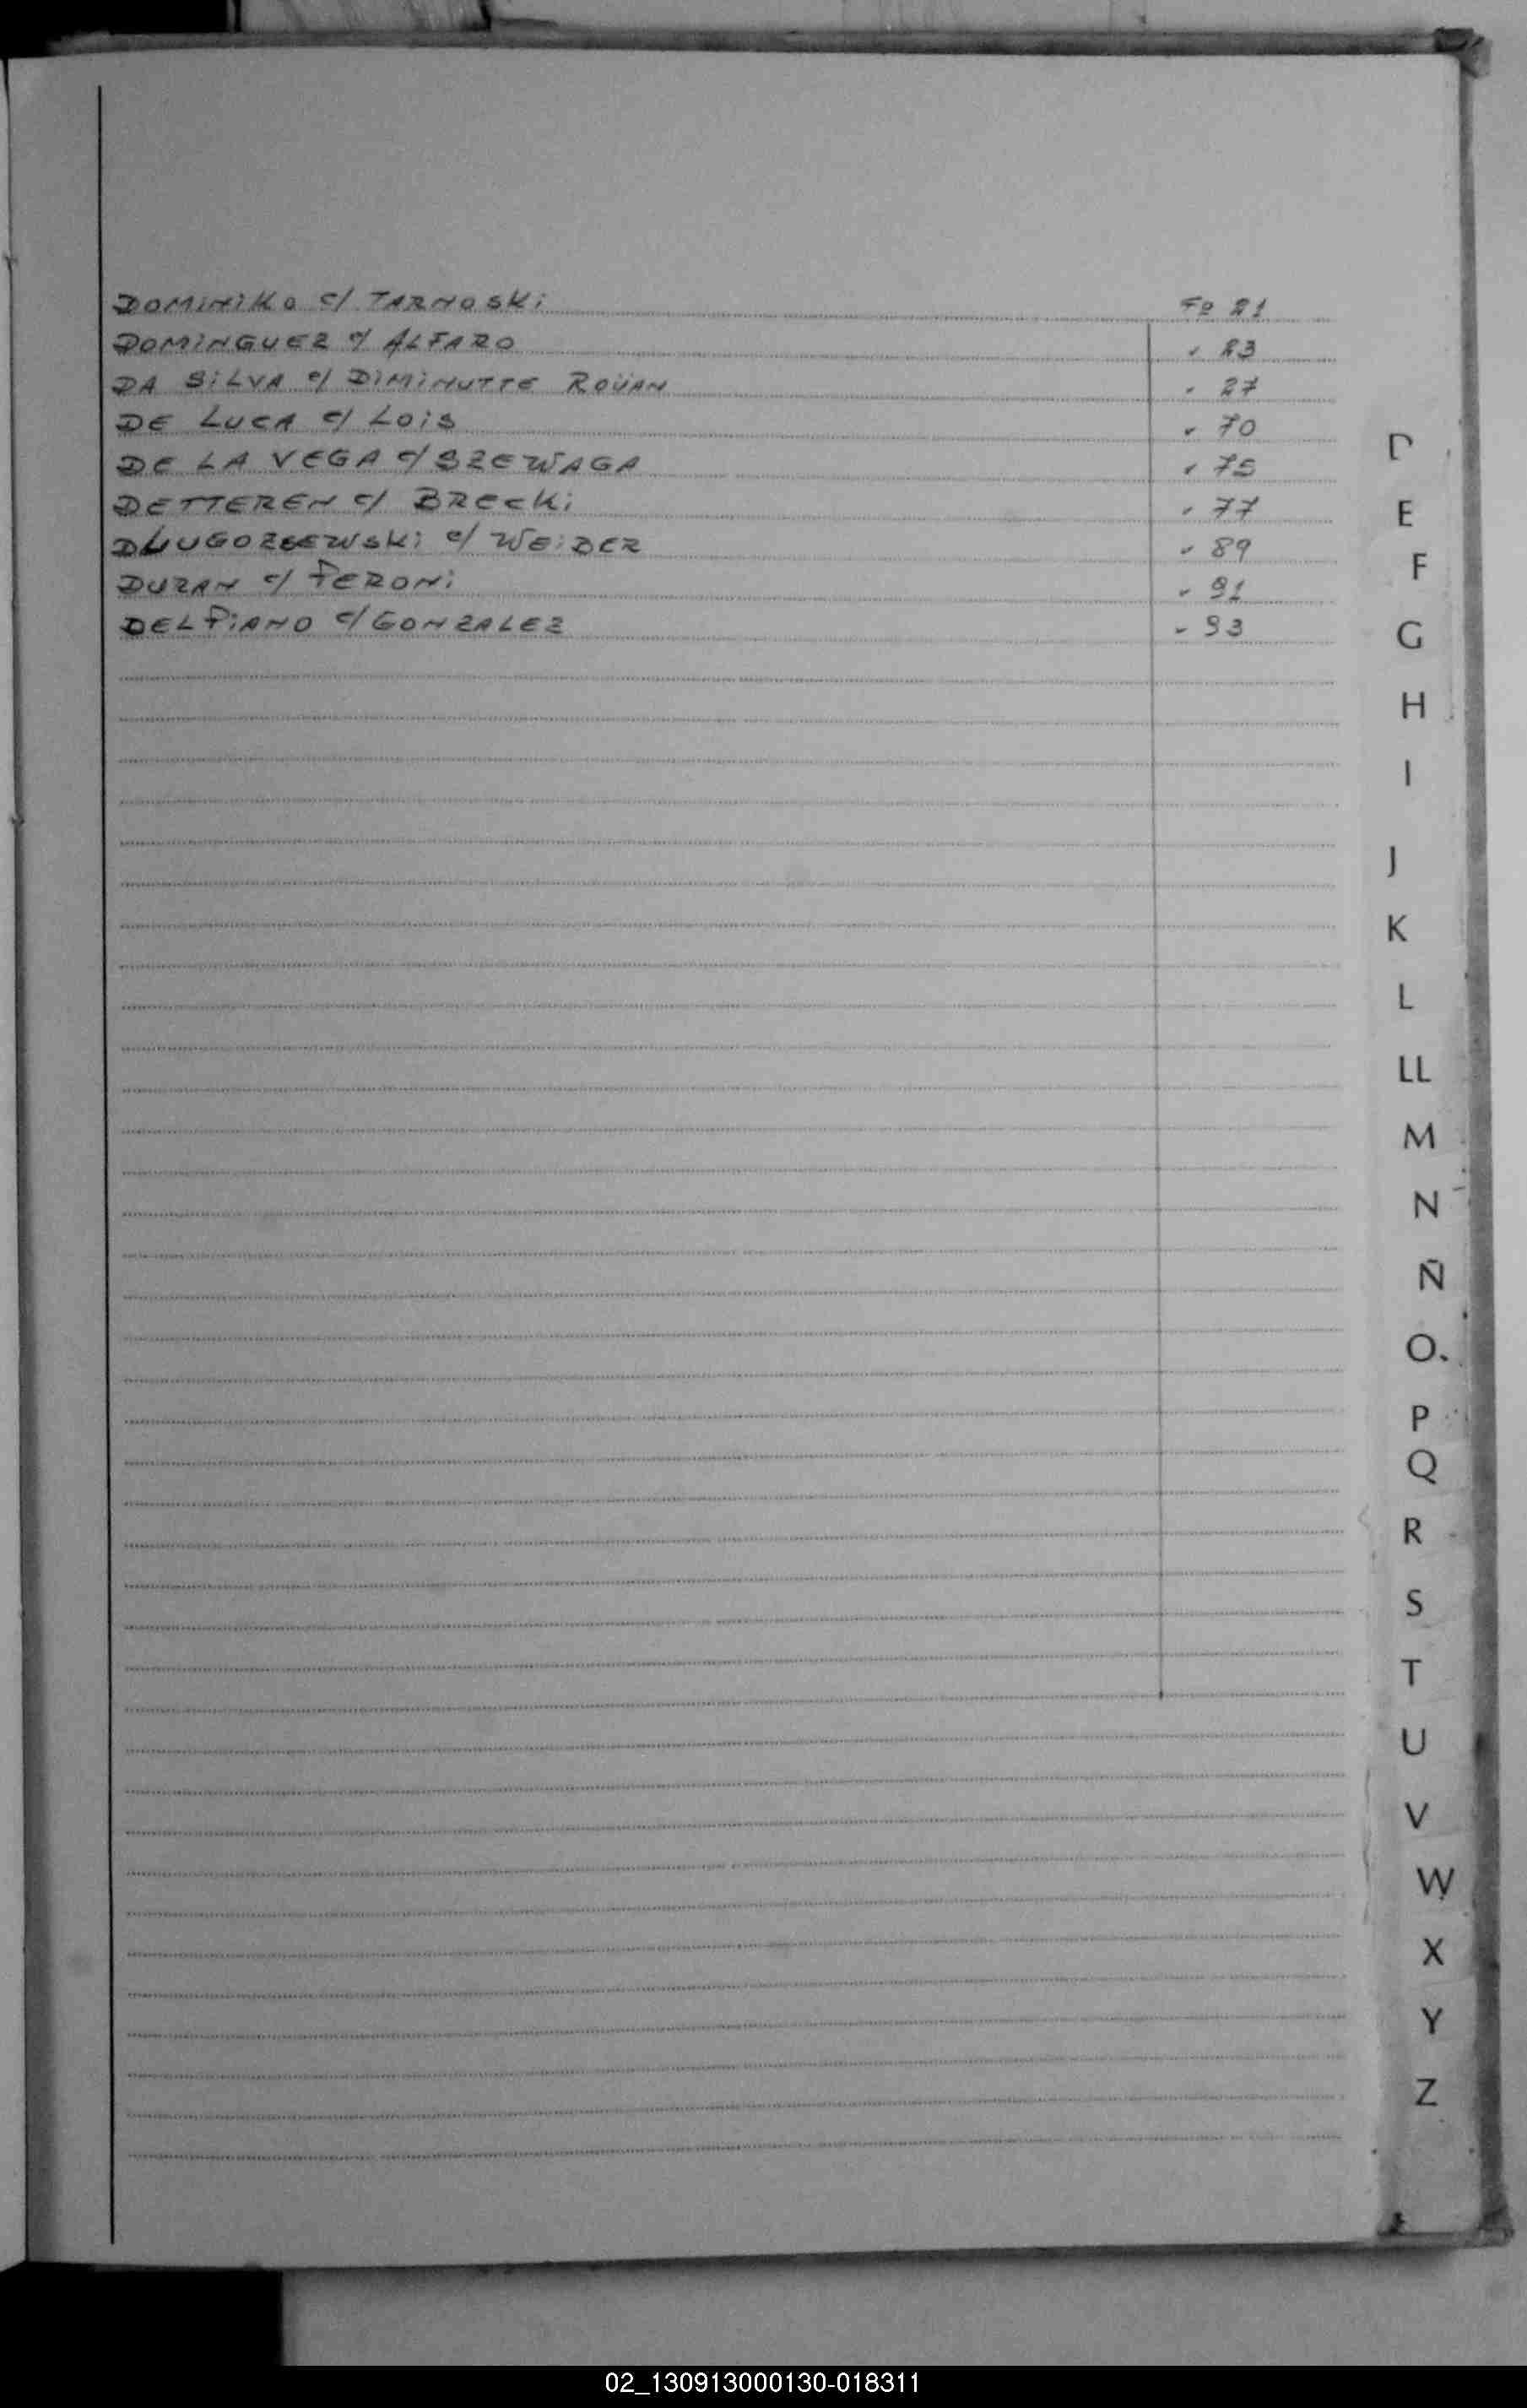 DOMINIKO c/ TARNOSKI Fº 21
DOMINGUEZ c/ ALFARO " 23
DA SILVA c/ DIMINUTTE ROÜAN " 27
DE LUCA c/ LOIS " 70
DE LA VEGA c/ SZEWAGA " 75
DETTEREN c/ BRECKI " 77
DLUGOZSEWSKI c/ WEIDER " 89
DURAN c/ PERONI " 91
DELPIANO c/ GONZALEZ " 93
D
E
F
G
H
I
J
K
L
LL
M
N
Ñ
O
P
Q
R
S
T
U
V
W
X
Y
Z
02_130913000130-018311